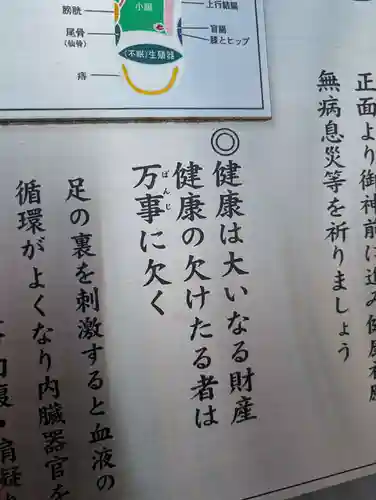 小腸
上行結腸
膀胱
尾骨
(仙骨)
盲腸
膝とヒップ
(不眠)生殖器
痔
正面より御神前に進み健康祈願
無病息災等を祈りましょう
◎健康は大いなる財産
健康の欠けたる者は
万事に欠く
ばんじ
足の裏を刺激すると血液の
循環がよくなり内臓器官を